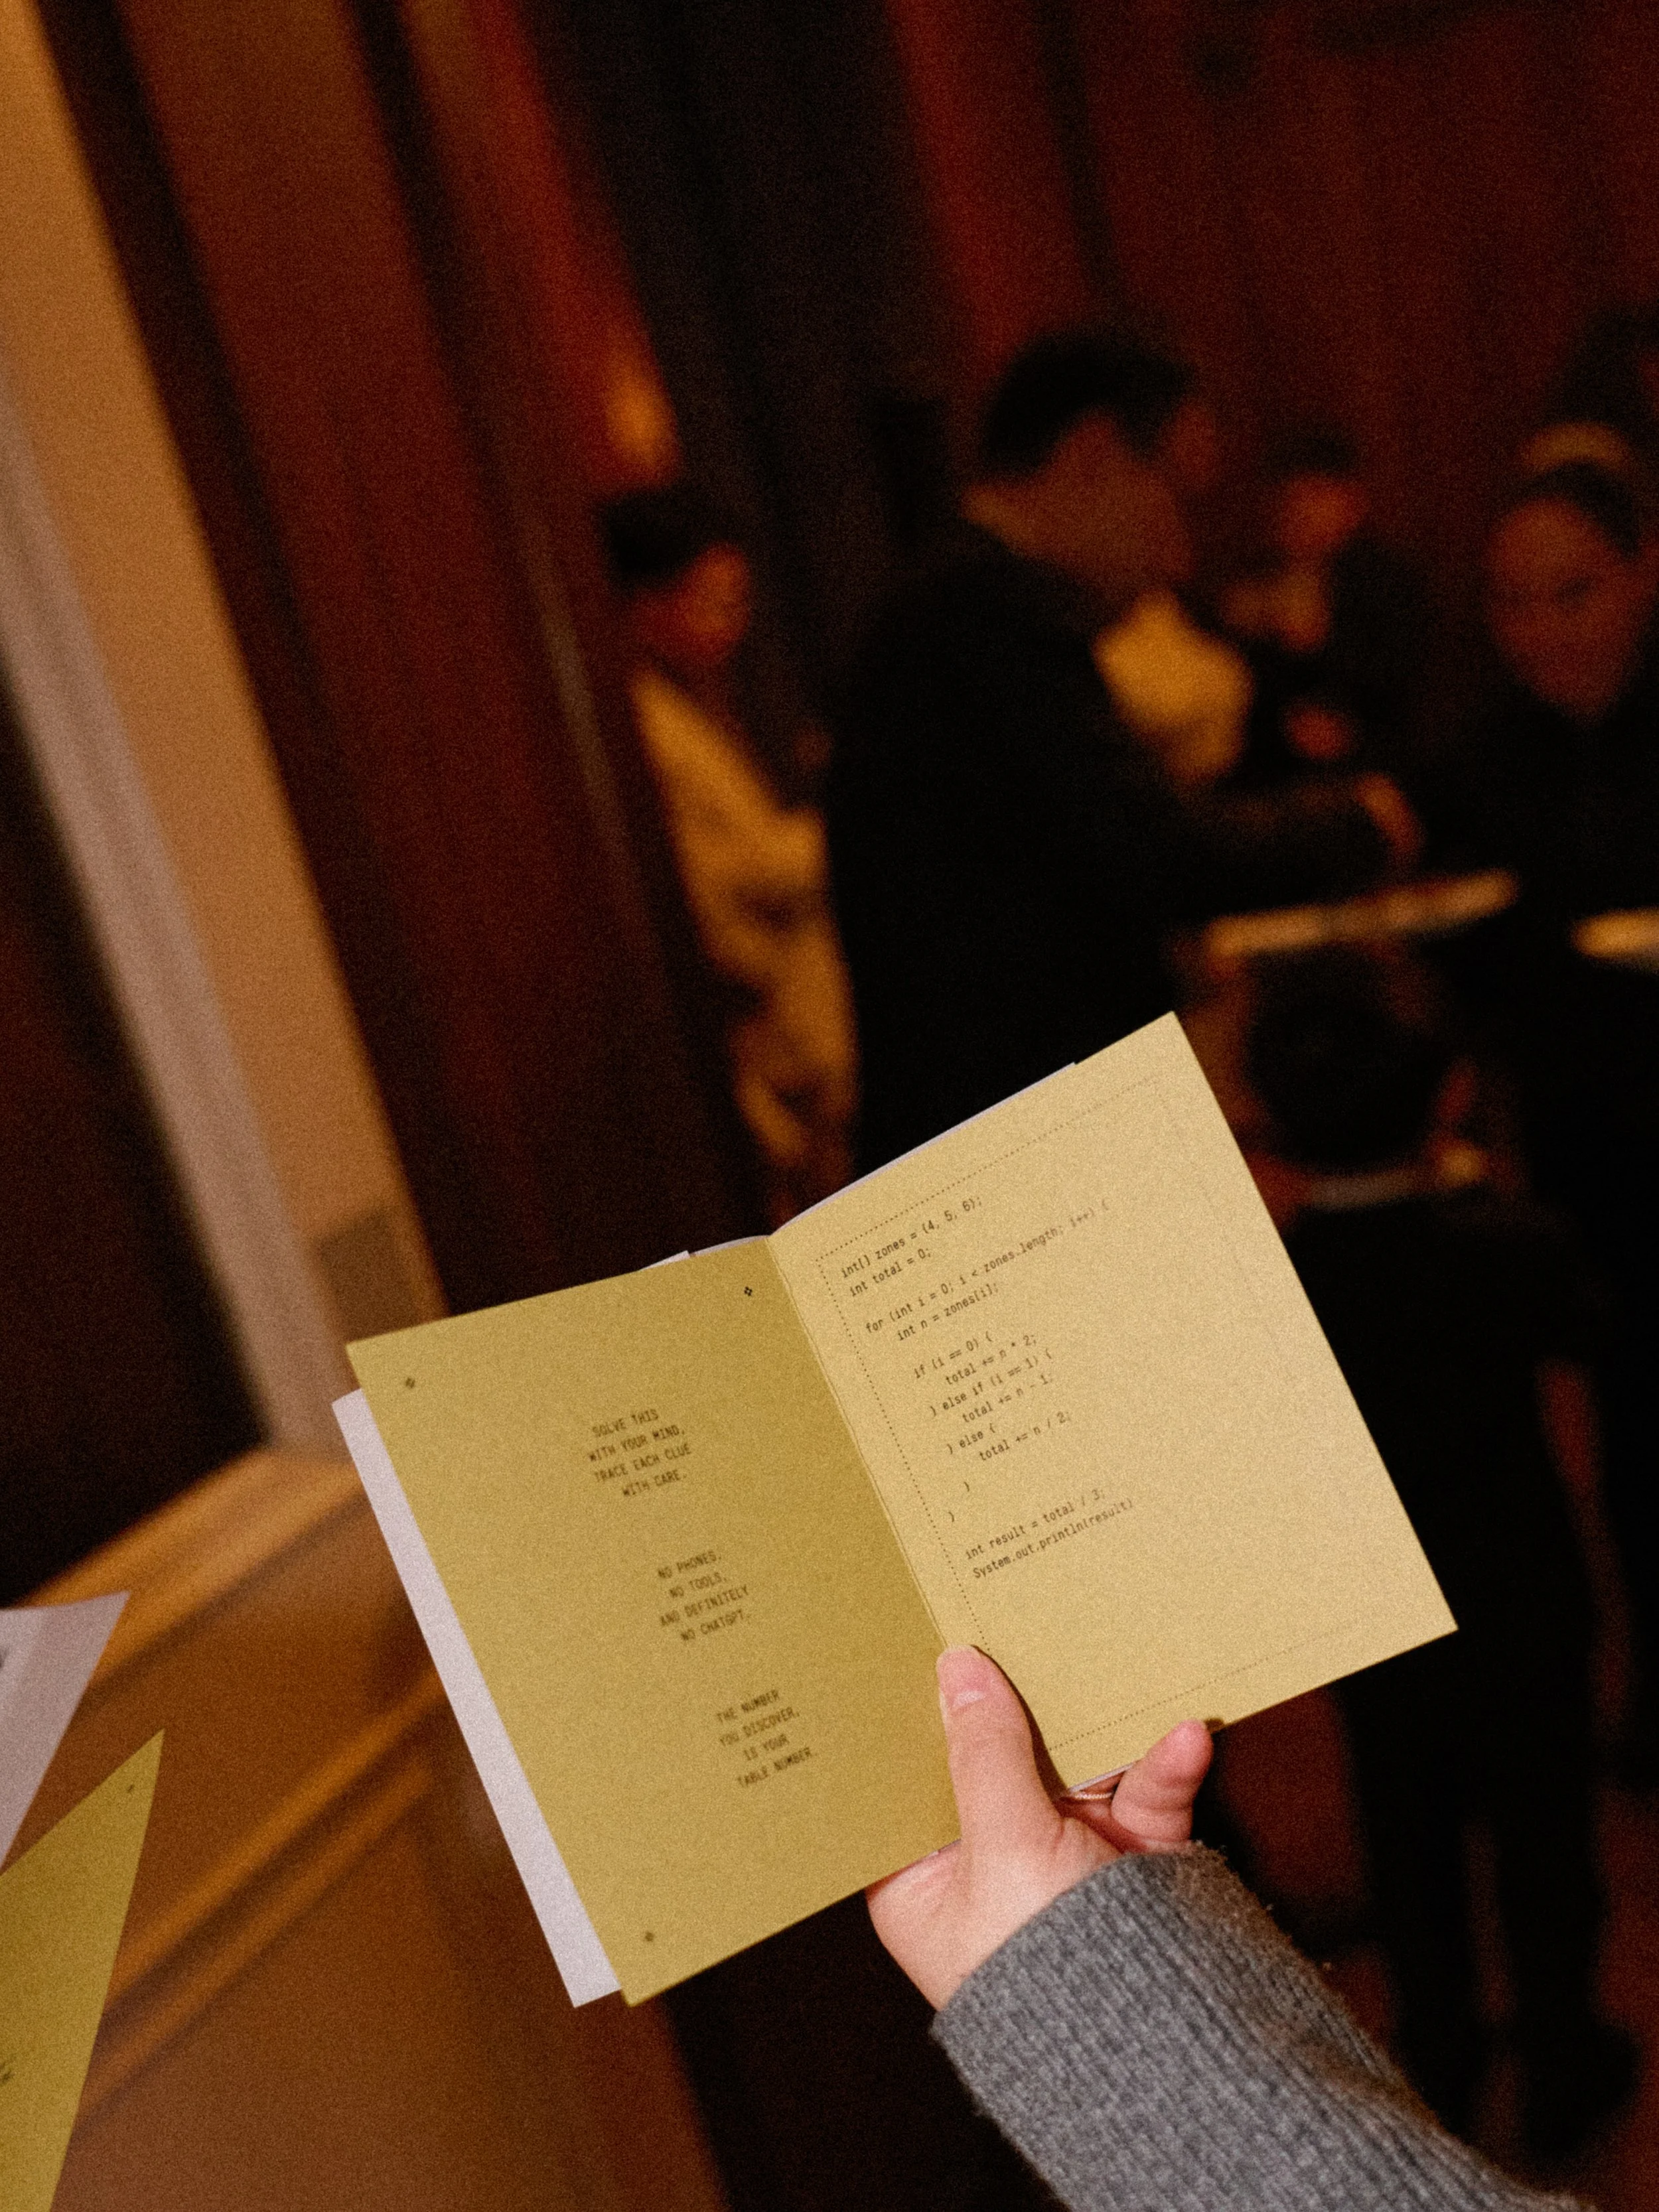 SOLVE THIS
WITH YOUR MIND,
TRACE EACH CLUE
WITH CARE.
NO PHONES,
NO TOOLS,
AND DEFINITELY
NO CHATGPT.
THE NUMBER
YOU DISCOVER,
IS YOUR
TABLE NUMBER.
int[] zones = {4, 5, 6};
int total = 0;
for (int i = 0; i < zones.length; i++) {
int n = zones[i];
if (i == 0) {
total += n * 2;
} else if (i == 1) {
total += n - 1;
} else {
total += n / 2;
}
}
int result = total / 3;
System.out.println(result)